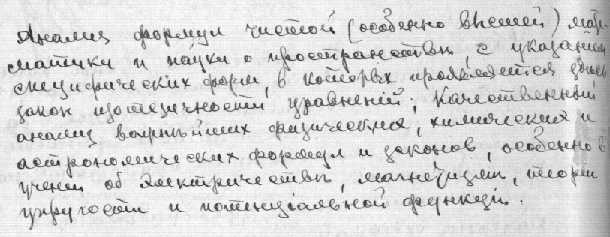 Анализ формул чистой (особенно высшей) мате-
матики и науки о пространствѣ, с указаніем
специфических форм, в которых проявляется здѣсь
закон изотезичности уравненій; качественный
анализ важнѣйших физических, химических и
астрономических формул и законов, особенно в
ученіи об электричествѣ, магнетизмѣ, теоріи
упругости и потенціальной функціи.